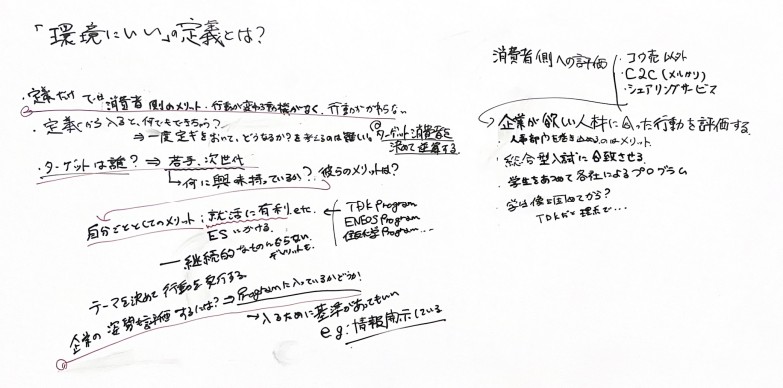 「環境にいい」の定義とは?
・定義だけでは消費者側のメリット・行動が変わる動機がなく、行動がかわらない
・定義から入ると、何でもでちゃう?
⇒ 一度定義をおいて、どうなるか?を考えるのは難しい。
ターゲット消費者を
決めて逆算する。
・ターゲットは誰? ⇒ 若手、次世代
何に興味持っているか? 彼らのメリットは?
自分ごととしてのメリット:就活に有利 etc.
ESにかける。
← TDK Program
ENEOS Program
住友化学 Program...
― 継続的なものにならない
デメリットも
テーマを決めて行動を実行する
企業の姿勢を評価するには? ⇒ Programに入っているかどうか!
→入るために基準があってもいい
eg:情報開示している
消費者側への評価
・コウ売以外
・C2C(メルカリ)
・シェアリングサービス
企業が欲しい人材に合った行動を評価する。
・人事部門を巻き込めるのはメリット
・総合型入試に合致させる
・学生をあつめて各社によるプログラム
・学生像を固めてから?
TDKだと理点で...